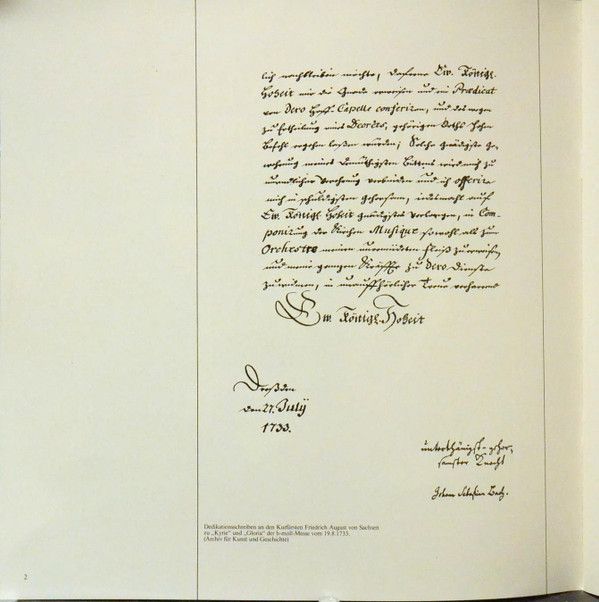 lich nachbleiben möchte, daferne Ew. Königl.
Hoheit mir die Gnade erweisen und ein Prædicat
von Dero Hoff-Capelle conferiren, und deswegen
zu Ertheilung eines Decrets, gehörigen Orths hohen
Befehl ergehen laßen würden; Solche gnädigste Ge-
wehrung meines demüthigsten Bittens wird mich zu
unendlicher Verehrung verbinden und ich offerire
mich in schuldigsten Gehorsam, iedesmahl auf
Ew. Königl. Hoheit gnädigstes Verlangen, in Com-
ponirung der Kirchen Musique sowohl als zum
Orchestre meinen unermüdeten Fleiß zu erweisen,
und meine gantzen Kräffte zu Dero Dienste
zu widmen, in unauffhörlicher Treue verharrend
Ew. Königl. Hoheit
Dreßden
den 27. July
1733.
unterthänigst-gehor-
samster Knecht
Johann Sebastian Bach.
Dedikationsschreiben an den Kurfürsten Friedrich August von Sachsen
zu „Kyrie" und „Gloria" der h-moll-Messe vom 19.8.1733.
(Archiv für Kunst und Geschichte)
2